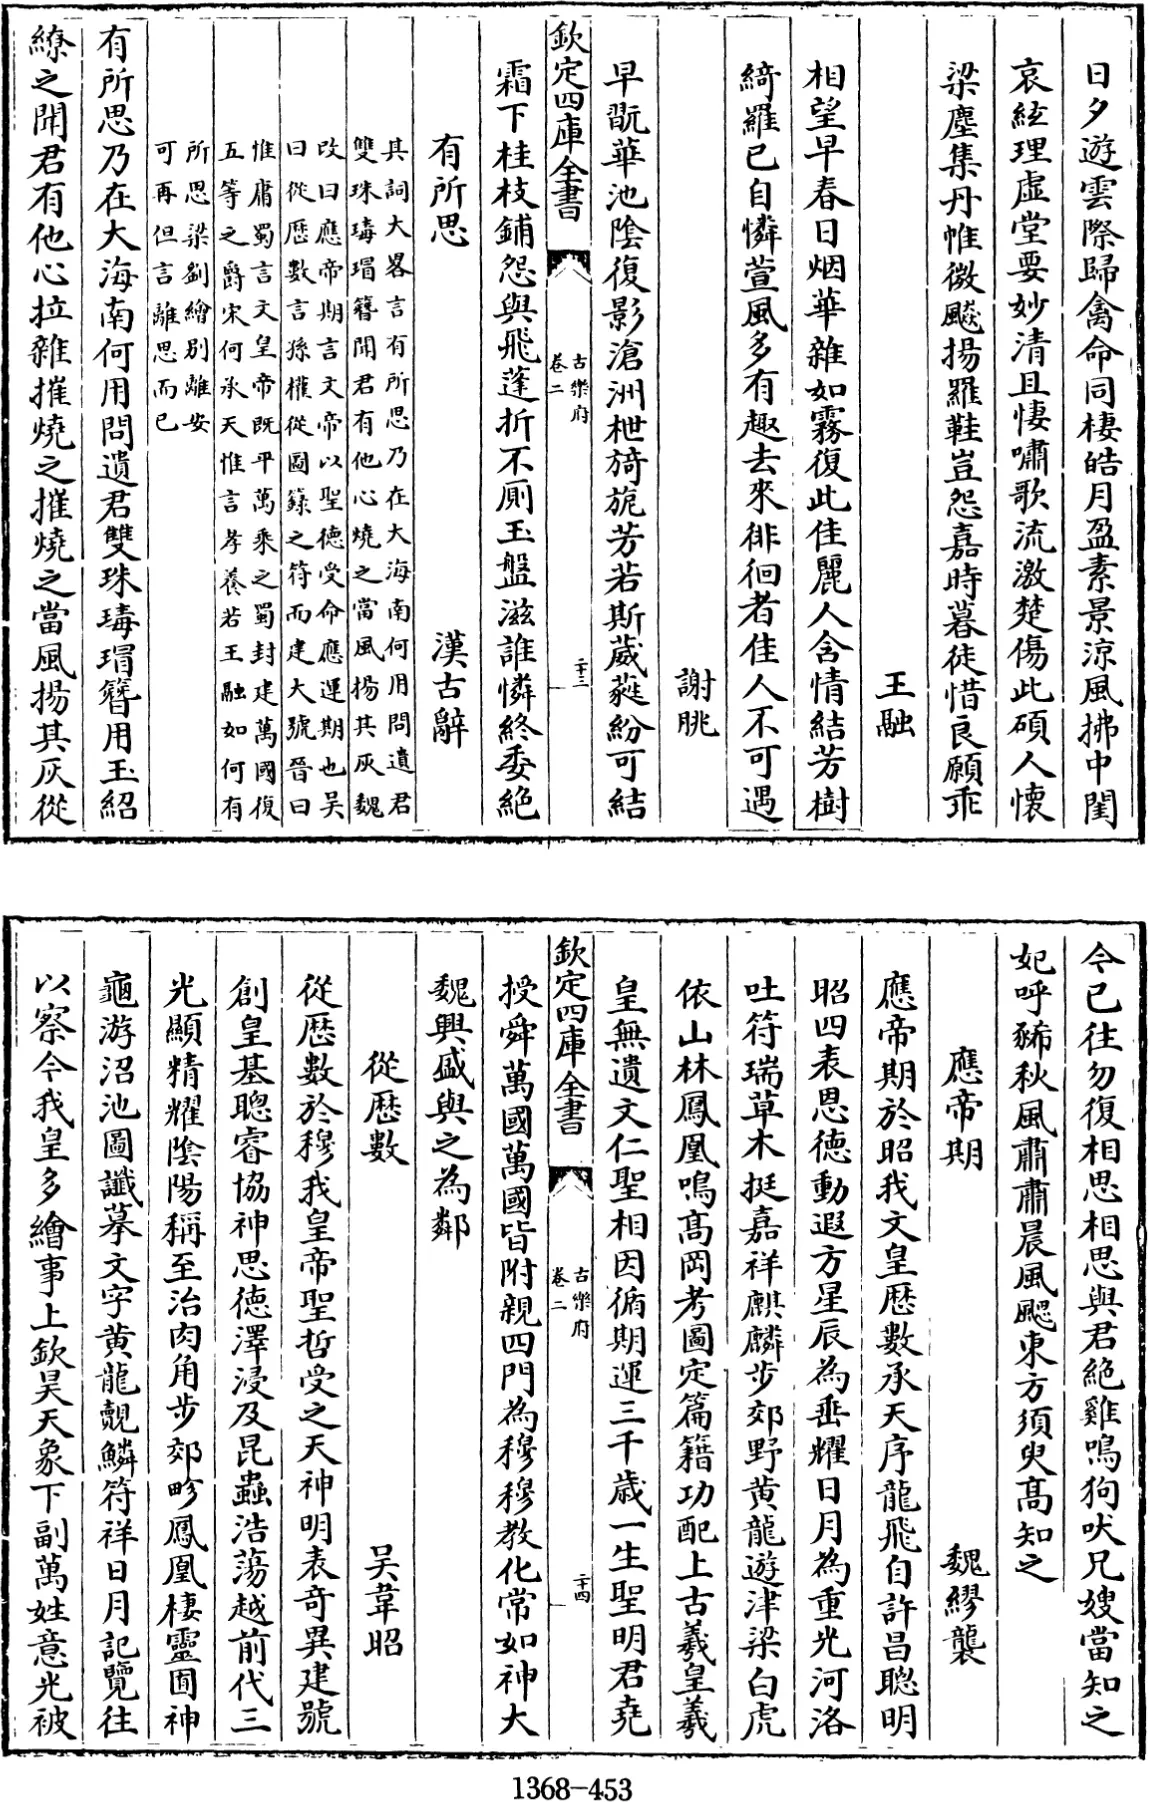 日夕遊雲際歸禽命同棲皓月盈素景涼風拂中闈
哀絃理虛堂要妙清且悽嘯歌流激楚傷此碩人懷
梁塵集丹帷微飈揚羅鞋豈怨嘉時暮徒惜良願乖
王融
相望早春日烟華雜如霧復此佳麗人含情結芳樹
綺羅已自憐萱風多有趣去來徘徊者佳人不可遇
謝朓
早翫華池陰復影滄洲枻旖旎芳若斯葳蕤紛可結
欽定四庫全書
古樂府
卷二
二十三
霜下桂枝鋪怨與飛蓬折不厠玉盤滋誰憐終委絶
有所思
漢古辭
其詞大畧言有所思乃在大海南何用問遺君
雙珠瑇瑁簪聞君有他心燒之當風揚其灰魏
改曰應帝期言文帝以聖德受命應運期也吴
曰從歴數言孫權從圖籙之符而建大號晉曰
惟庸蜀言文皇帝既平萬乘之蜀封建萬國復
五等之爵宋何承天惟言孝養若王融如何有
所思梁劉繪别離安
可再但言離思而已
有所思乃在大海南何用問遺君雙珠瑇瑁簪用玉紹
繚之聞君有他心拉雜摧燒之摧燒之當風揚其灰從
今已往勿復相思相思與君絶雞鳴狗吠兄嫂當知之
妃呼豨秋風肅肅晨風颸東方須臾髙知之
應帝期
魏繆襲
應帝期於昭我文皇歴數承天序龍飛自許昌聰明
昭四表恩德動遐方星辰為垂耀日月為重光河洛
吐符瑞草木挺嘉祥麒麟步郊野黄龍遊津梁白虎
依山林鳳凰鳴髙岡考圖定篇籍功配上古羲皇羲
皇無遺文仁聖相因循期運三千歳一生聖明君堯
欽定四庫全書
古樂府
卷二
二十四
授舜萬國萬國皆附親四門為穆穆教化常如神大
魏興盛與之為鄰
從歴數
吴韋昭
從歴數於穆我皇帝聖哲受之天神明表奇異建號
創皇基聰睿協神思德澤浸及昆蟲浩蕩越前代三
光顯精耀陰陽稱至治肉角步郊畛鳳凰棲靈囿神
龜游沼池圖讖摹文字黄龍覿鱗符祥日月記覽往
以察今我皇多繪事上欽昊天象下副萬姓意光被
1368-453